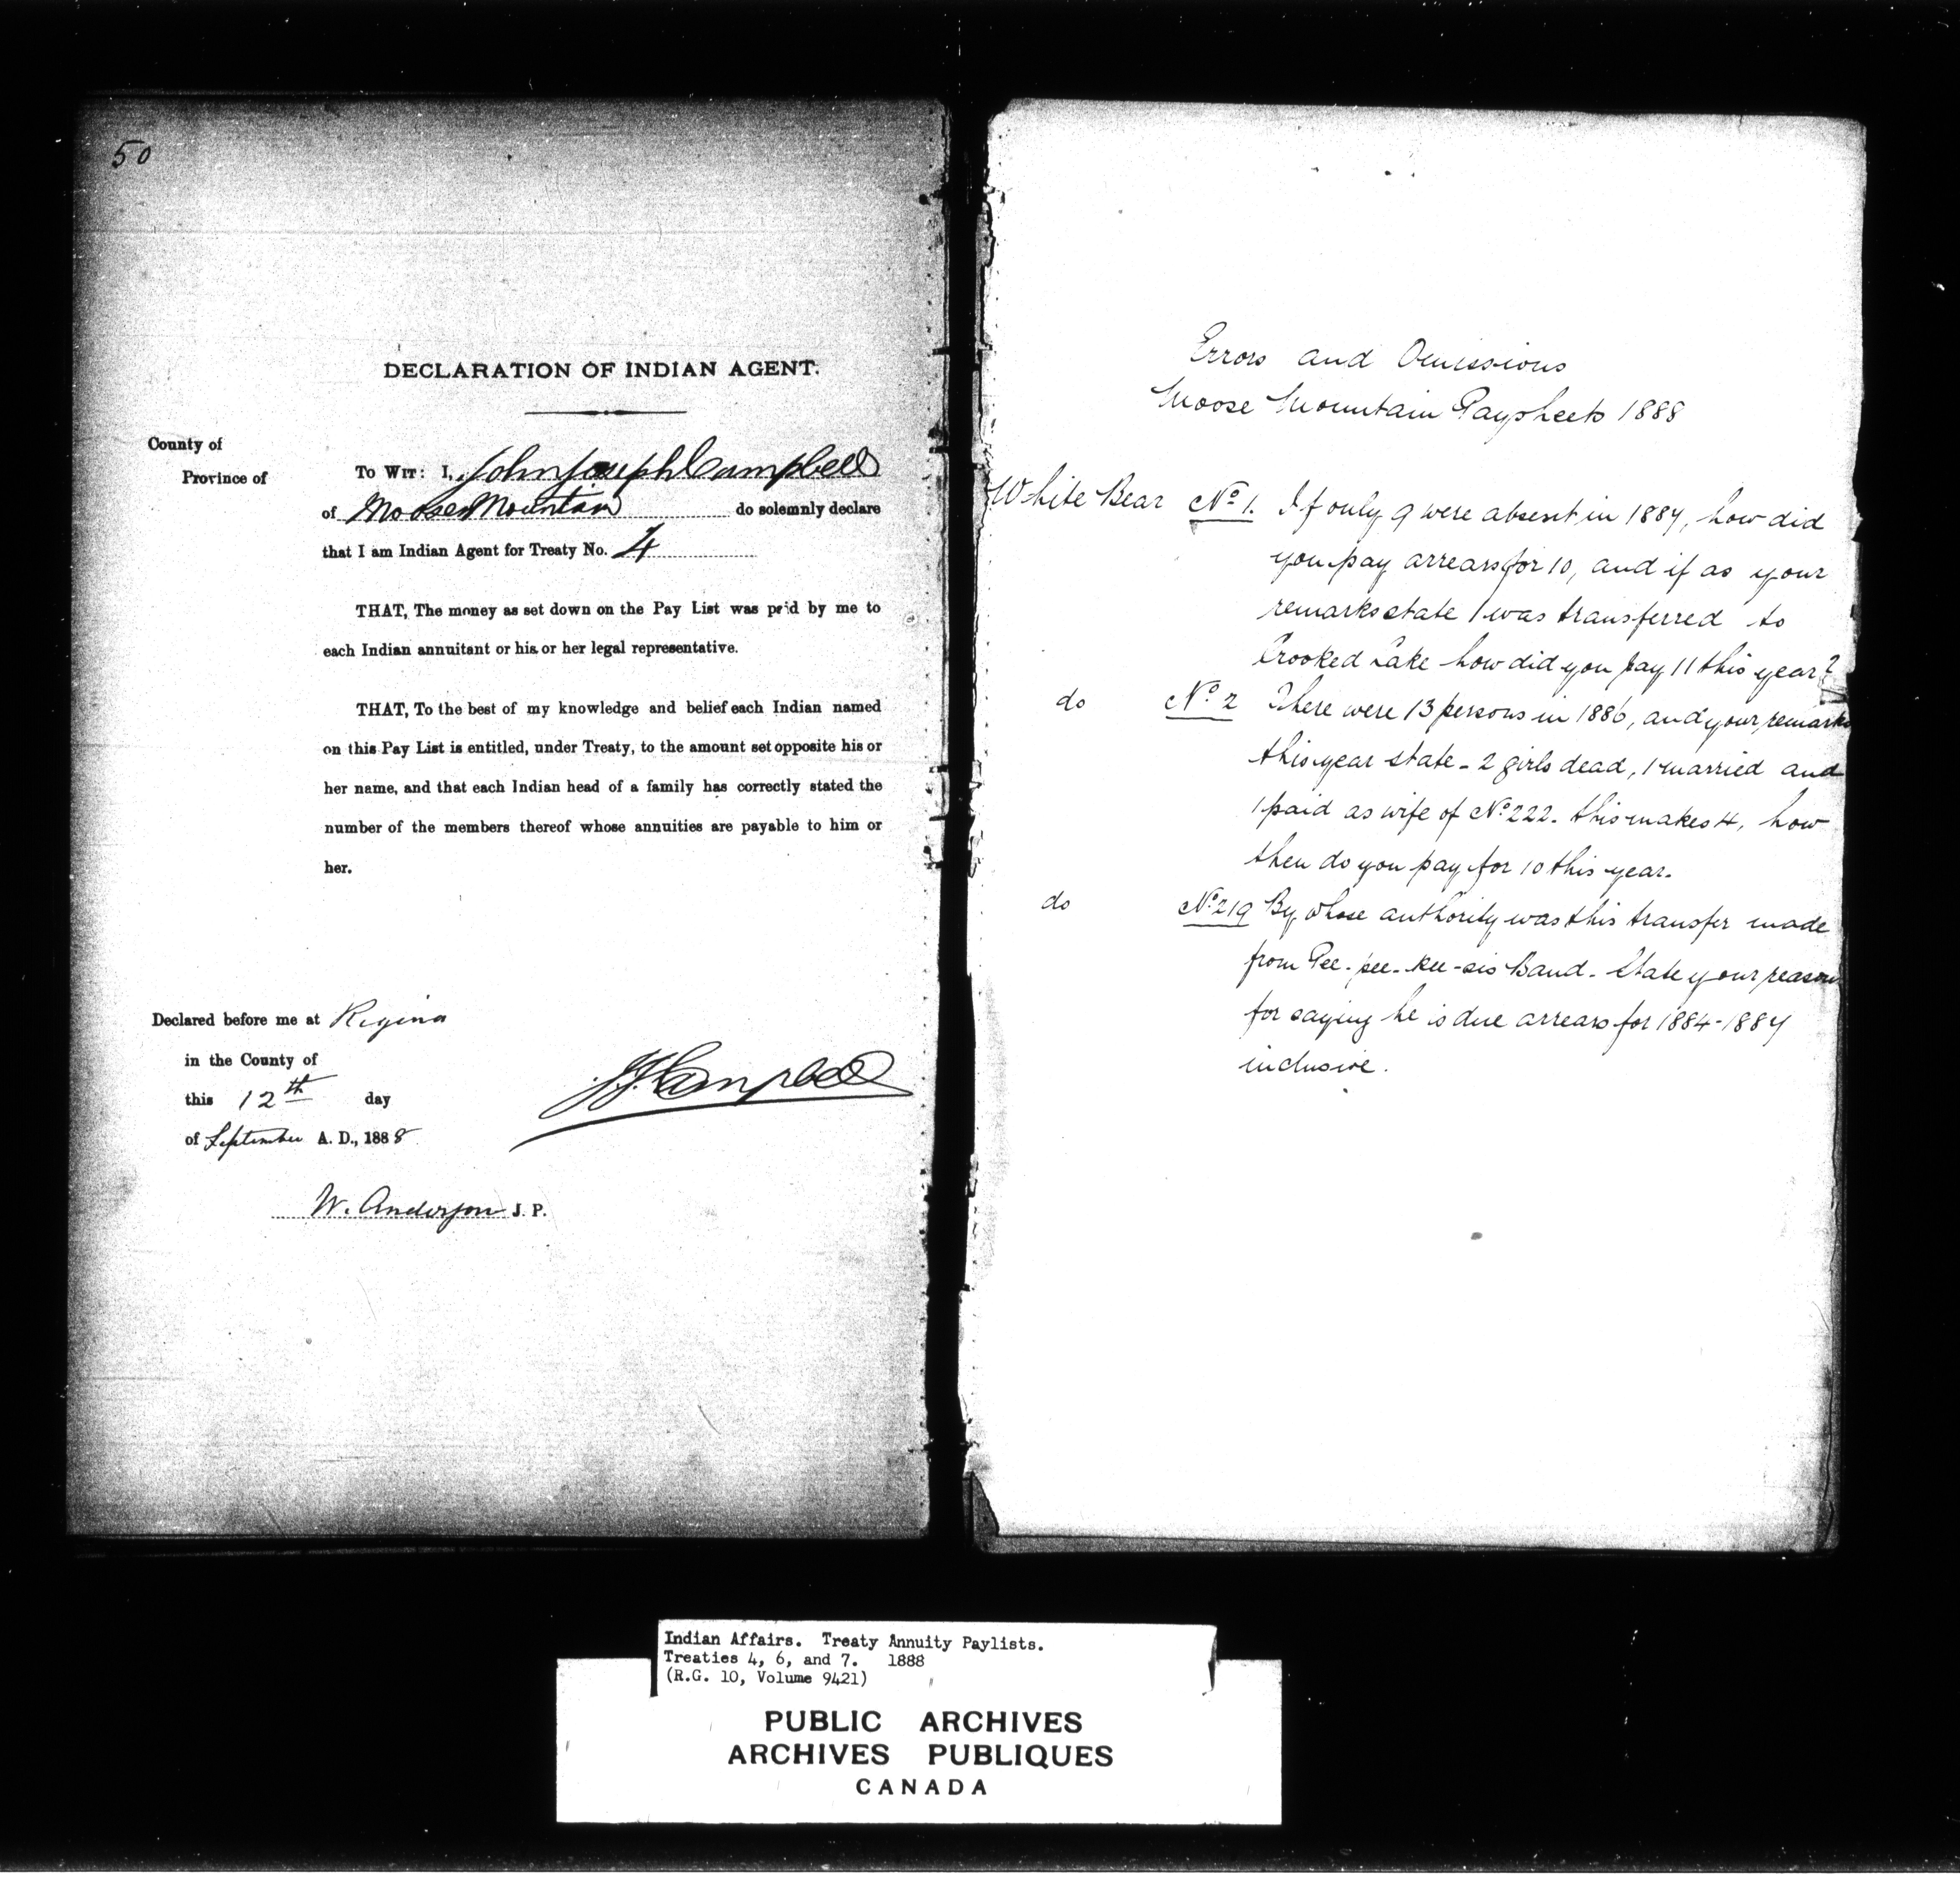 50
DECLARATION OF INDIAN AGENT.
County of
Province of
To Wit: I, John Joseph Campbell
of Moose Mountain do solemnly declare
that I am Indian Agent for Treaty No. 4
THAT, The money as set down on the Pay List was paid by me to
each Indian annuitant or his or her legal representative.
THAT, To the best of my knowledge and belief each Indian named
on this Pay List is entitled, under Treaty, to the amount set opposite his or
her name, and that each Indian head of a family has correctly stated the
number of the members thereof whose annuities are payable to him or
her.
Declared before me at Regina
in the County of
this 12th day
of September A. D., 1888
J J Campbell
W. Anderson J. P.
Errors and Omissions
Moose Mountain Paysheets 1888
White Bear No 1. If only 9 were absent in 1887, how did
you pay arrears for 10, and if as your
remarks state 1 was transferred to
Crooked Lake how did you pay 11 this year?
do No 2 There were 13 persons in 1886, and your remarks
this year state - 2 girls dead, 1 married and
1 paid as wife of No 222. this makes 4, how
then do you pay for 10 this year.
do No 219 By whose authority was this transfer made
from Pee-pee-kee-sis Band. State your reason
for saying he is due arrears for 1884-1887
inclusive.
Indian Affairs. Treaty Annuity Paylists.
Treaties 4, 6, and 7. 1888
(R.G. 10, Volume 9421)
PUBLIC ARCHIVES
ARCHIVES PUBLIQUES
CANADA